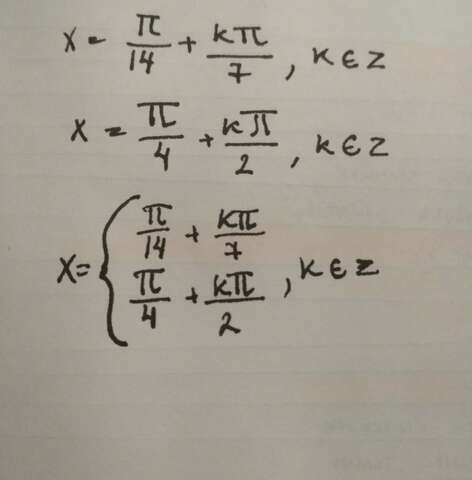 x = π/14 + kπ/7 , k ∈ z
x = π/4 + kπ/2 , k ∈ z
x = { π/14 + kπ/7
π/4 + kπ/2 , k ∈ z